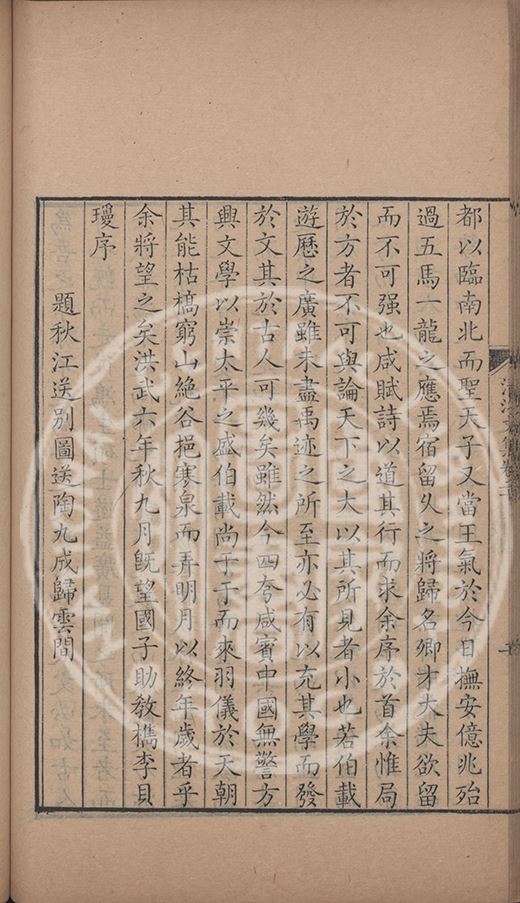 都以臨南北而聖天子又當王氣於今日撫安億兆殆
過五馬一龍之應焉宿留久之將歸名卿才大夫欲留
而不可强也咸賦詩以道其行而求余序於首余惟局
於方者不可與論天下之大以其所見者小也若伯載
遊歷之廣雖未盡禹迹之所至亦必有以充其學而發
於文其於古人可幾矣雖然今四夸咸賓中國無警方
興文學以崇太平之盛伯載尚于于而來羽儀於天朝
其能枯槁窮山絶谷挹寒泉而弄明月以終年歲者乎
余將望之矣洪武六年秋九月旣望國子助教檇李貝
瓊序
題秋江送别圖送陶九成歸雲間